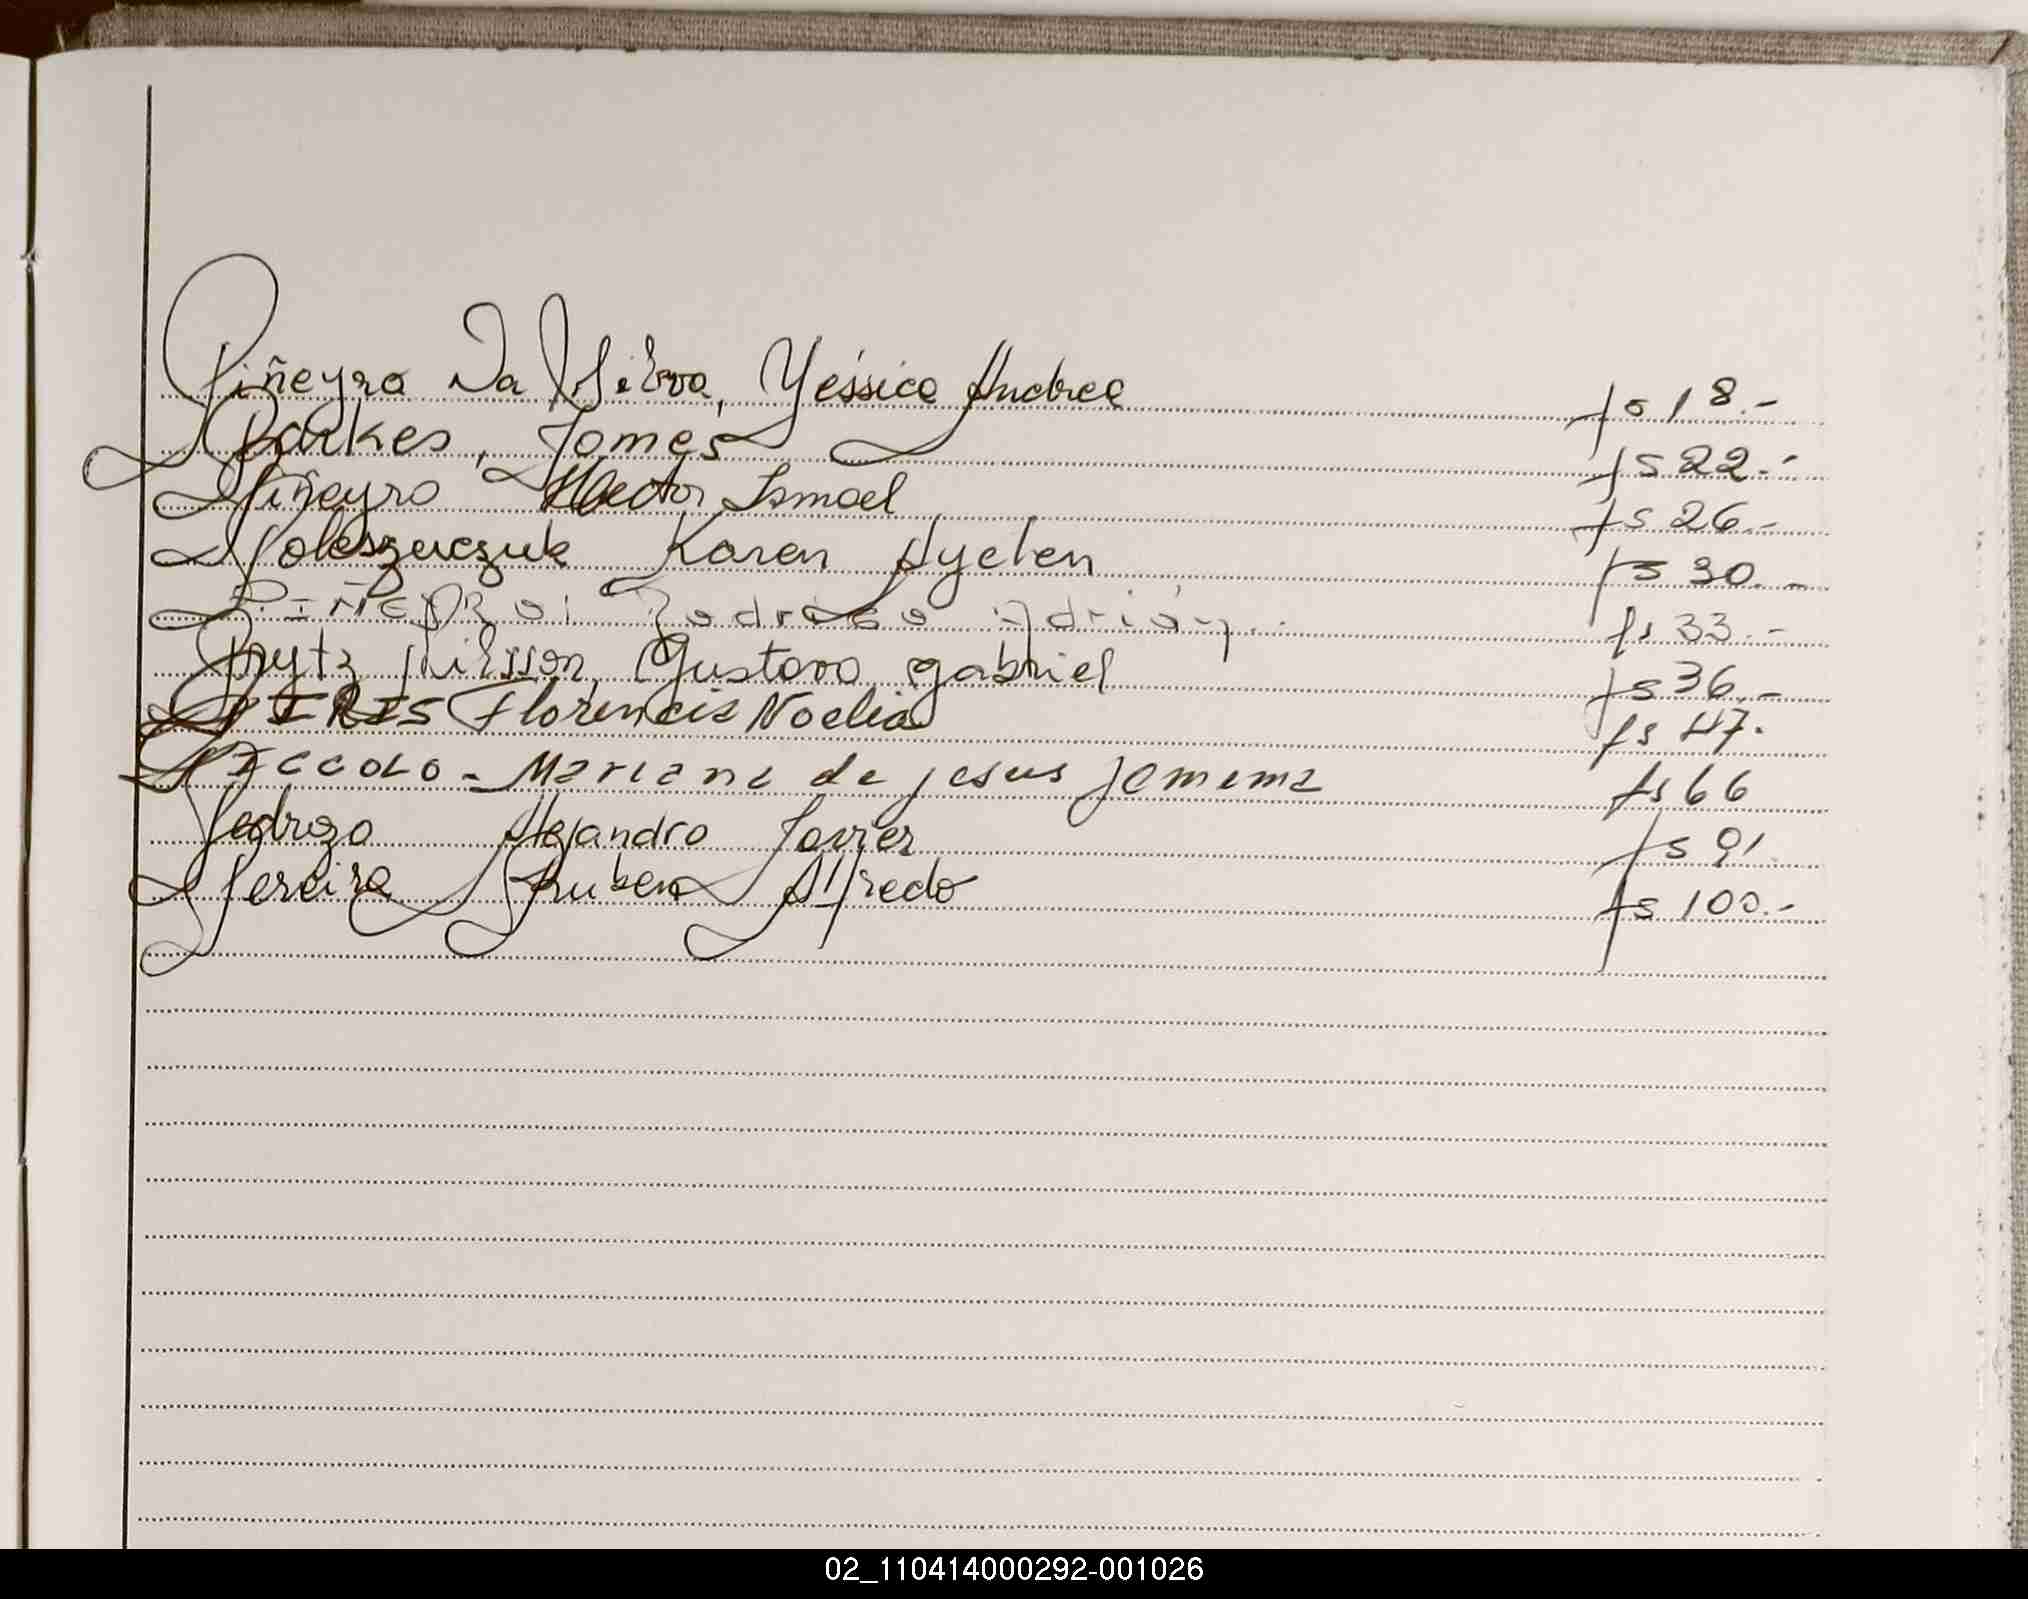 Piñeyro Da Silva, Yéssica Andrea fs 18.-
Parkes, James fs 22.-
Piñeyro Hector Ismael fs 26.-
Poleszuczuk Karen Ayelen fs 30.-
PiÑEyRo, Rodrigo Adrián fs 33.-
Prytz Nilsson, Gustavo Gabriel fs 36.-
PIRIS Florencia Noelia fs 47.
PICCOLO - Mariana de Jesus Jemima fs 66
Pedrozo Alejandro Javier fs 91
Pereira Ruben Alfredo fs 100.-
02_110414000292-001026